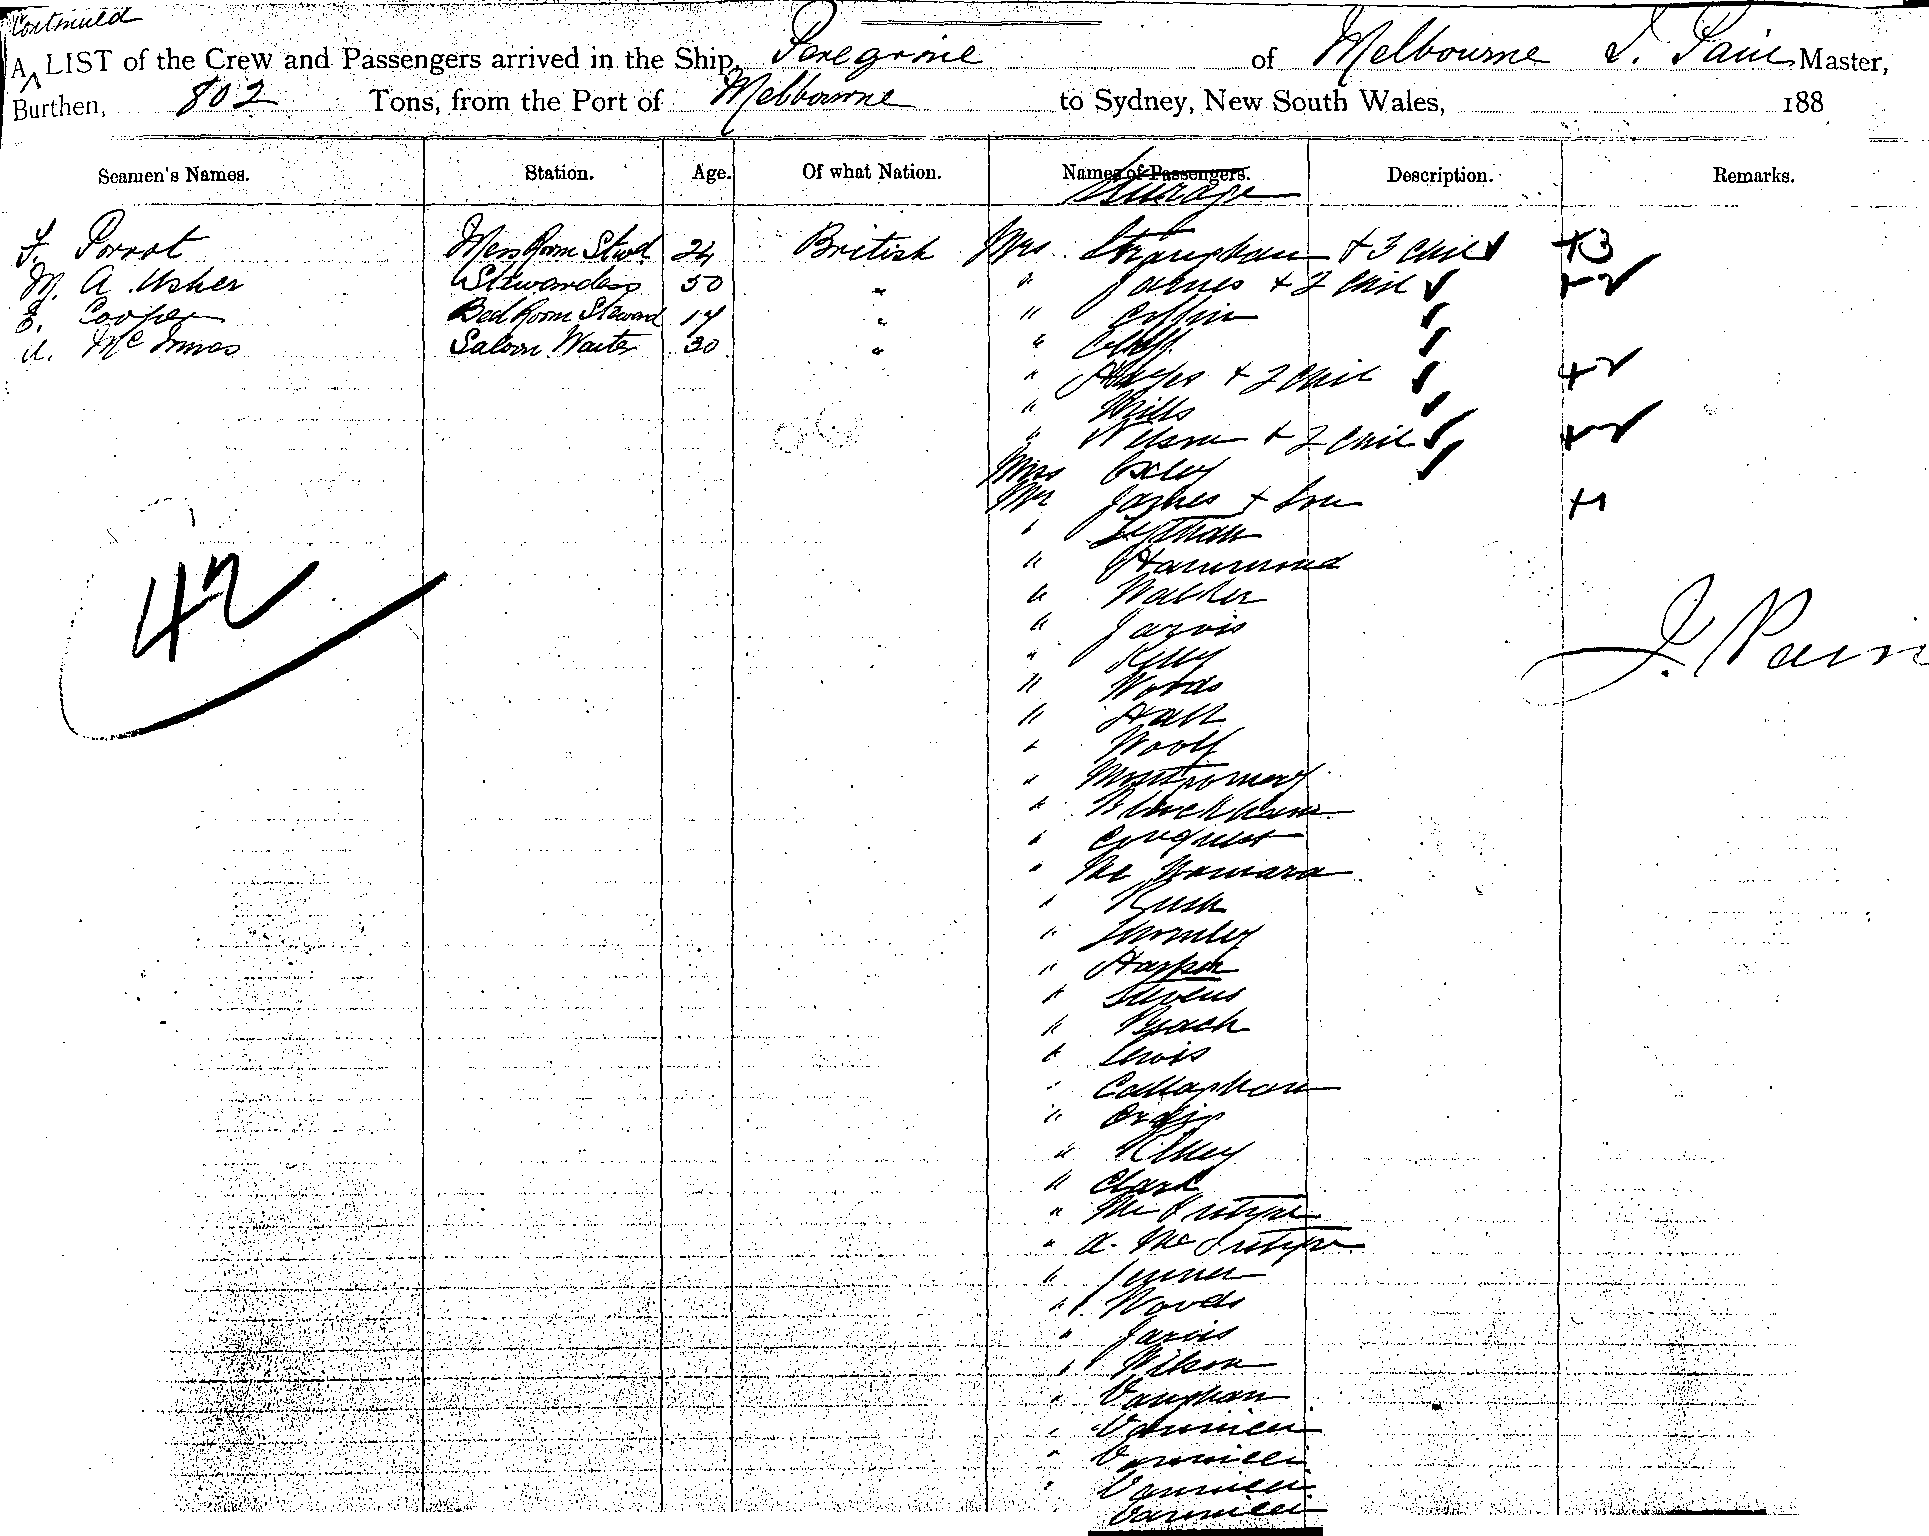 Continued
A LIST of the Crew and Passengers arrived in the Ship, Peregrine of Melbourne I. Pain Master,
Burthen, 802 Tons, from the Port of Melbourne to Sydney, New South Wales, 188
Seamen's Names. Station. Age. Of what Nation. Names of Passengers. Description. Remarks.
Steerage
F. Porrot Mess Room Stwd 24 British Mrs Straughan + 3 chil +3
M. A. Usher Stewardess 50 " " James + 2 chil +2
E. Cooper Bed Room Steward 17 " " Coffin
A. McInnes Saloon Waiter 30 " "
" Hayes + 2 chil +2
" Mills
" Nelson + 2 chil +2
Miss Oxley
Mr James + Son +1
"
" Hammond
42
" Walker
" Jarvis
J. Pain
" Kelly
" Woods
" Hall
" Woolf
" Montgomery
" Blackham
" Conquest
" McNamara
" Rush
"
" Harper
" Stevens
" Beach
" Lewis
" Callaghan
"
"
" Clark
" McIntyre
" A. McIntyre
" Jenner
" Woods
" Jarvis
" Wilson
" Vaughan
" Vannicci
" Vannicci
" Vannicci
Vannicci